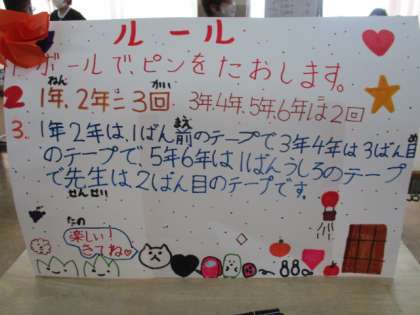 ルール
1. ボールで、ピンをたおします。
2. 1年、2年は3回 3年4年、5年、6年は2回
3. 1年2年は、1ばん前のテープで3年4年は3ばん目
のテープで、5年6年は1ばんうしろのテープ
で先生は2ばん目のテープです。
楽しい!
きてね♡